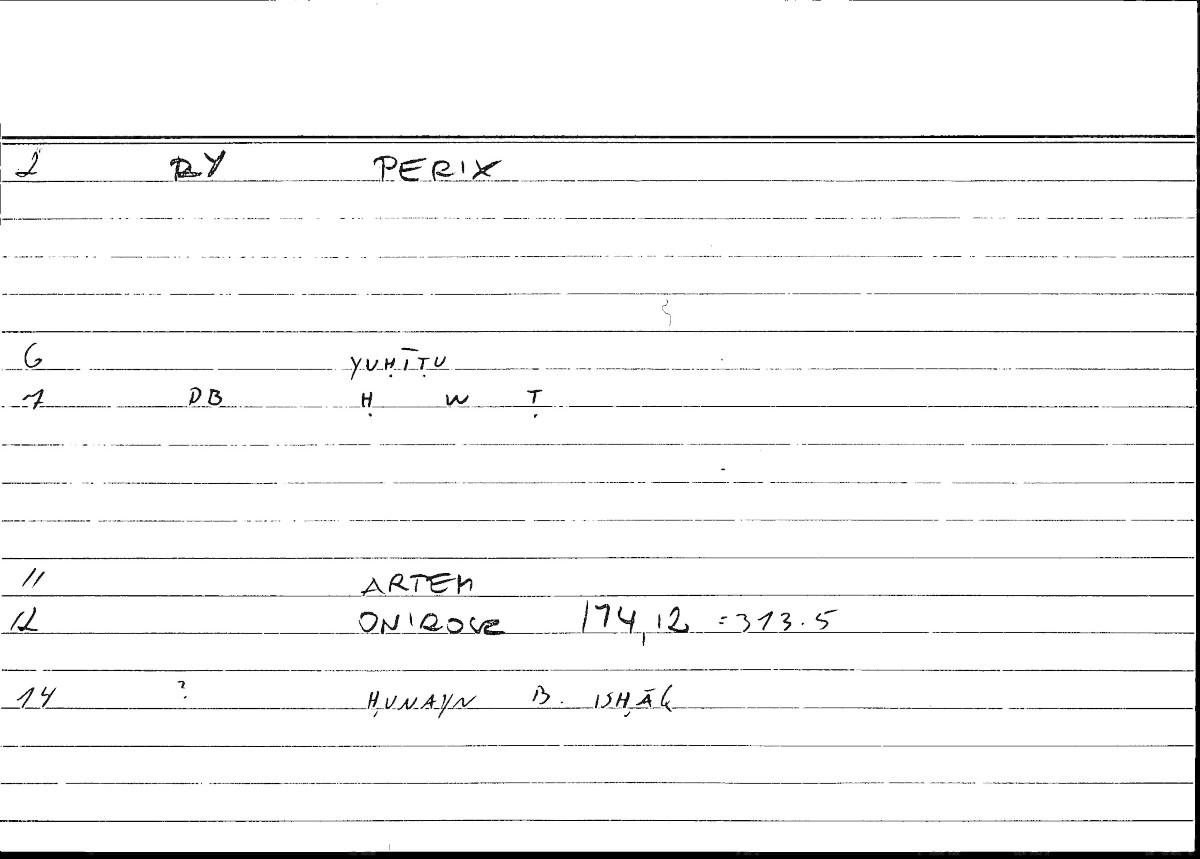 2 RY PERIX
6 YUḤĪṬU
7 DB Ḥ W Ṭ
11 ARTEM
12 ONIROCR 174,12 =313.5
14 ? ḤUNAYN B. ISḤĀḲ